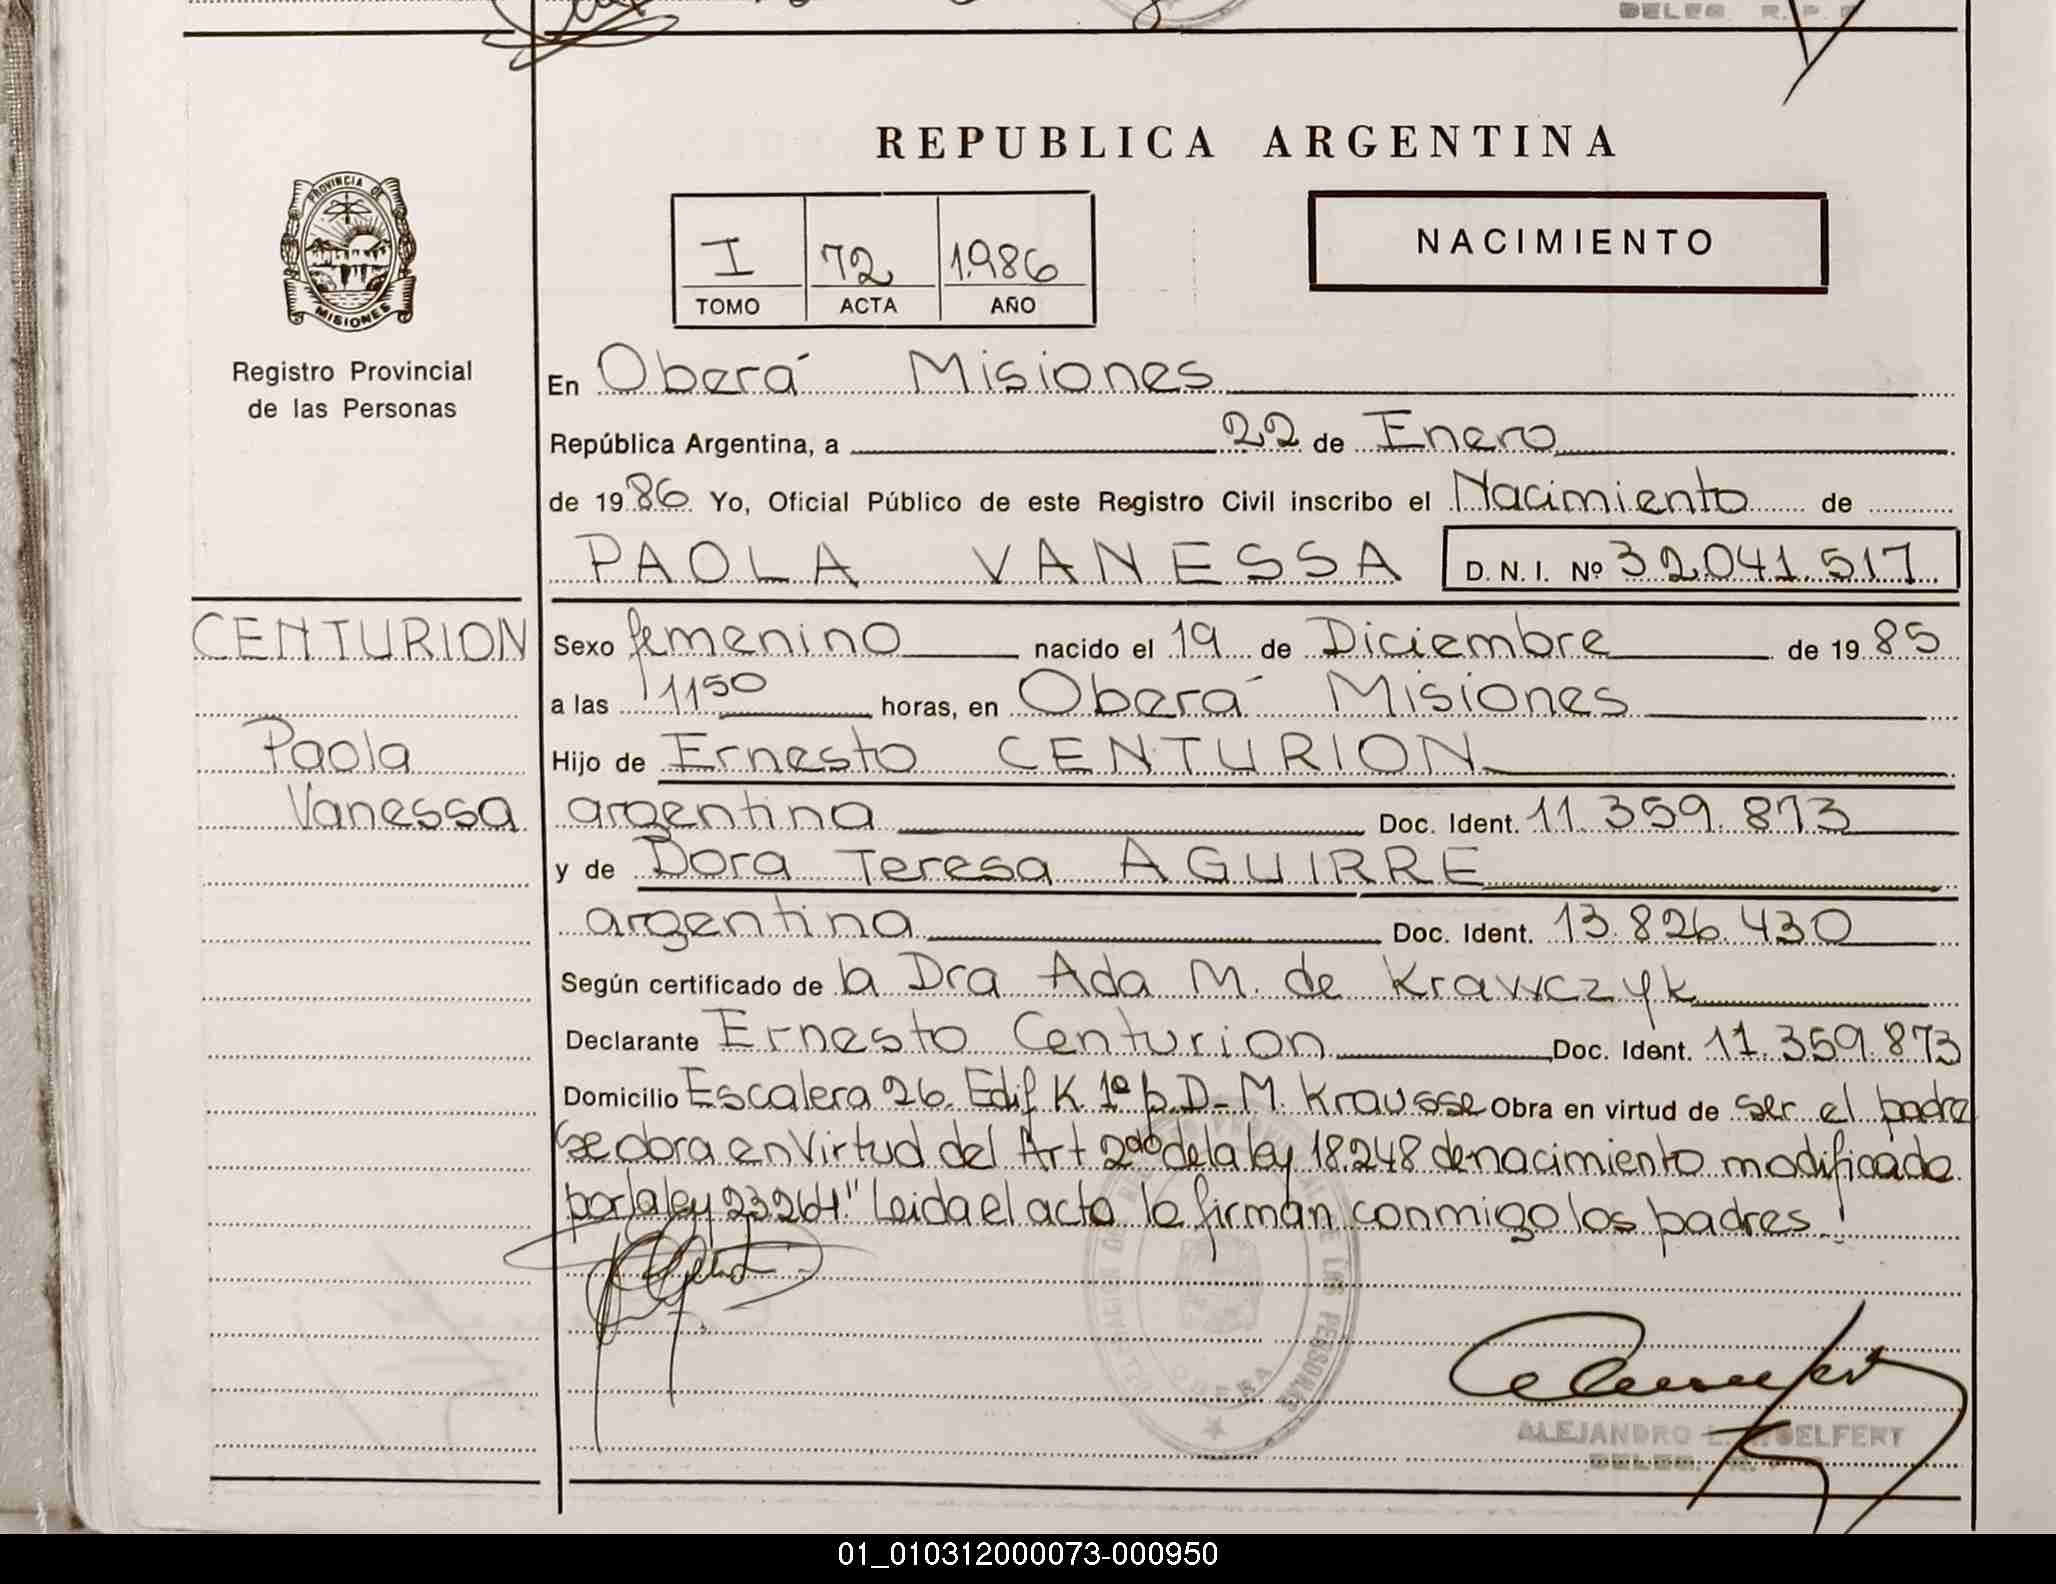 DELEG. R. P. P.
REPUBLICA ARGENTINA
PROVINCIA DE
MISIONES
Registro Provincial
de las Personas
I 72 1.986
TOMO ACTA AÑO
NACIMIENTO
En Oberá Misiones
República Argentina, a 22 de Enero
de 1986 Yo, Oficial Público de este Registro Civil inscribo el Nacimiento de
PAOLA VANESSA D. N. I. Nº 32.041.517
CENTURION
Paola
Vanessa
Sexo femenino nacido el 19 de Diciembre de 1985
a las 1150 horas, en Oberá Misiones
Hijo de Ernesto CENTURION
argentina Doc. Ident. 11.359.873
y de Dora Teresa AGUIRRE
argentina Doc. Ident. 13.826.430
Según certificado de la Dra Ada M. de Krawczyk
Declarante Ernesto Centurion Doc. Ident. 11.359.873
Domicilio Escalera 26. Edif K 1º p. D- M. Krausse Obra en virtud de ser el padre
se obra en Virtud del Art 2do de la ley 18248 de nacimiento modificado
por la ley 23264." Leida el acta la firman conmigo los padres.
OBERA
ALEJANDRO L. SELFERT
DELEG. R.
01_010312000073-000950